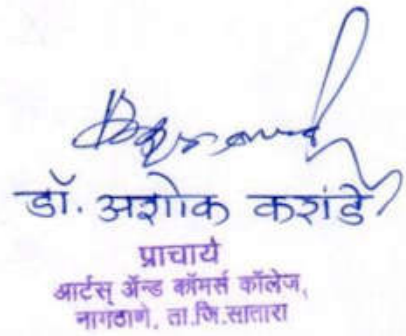 डॉ. अशोक करांडे
प्राचार्य
आर्टस् ॲन्ड कॉमर्स कॉलेज,
नागठाणे, ता.जि.सातारा